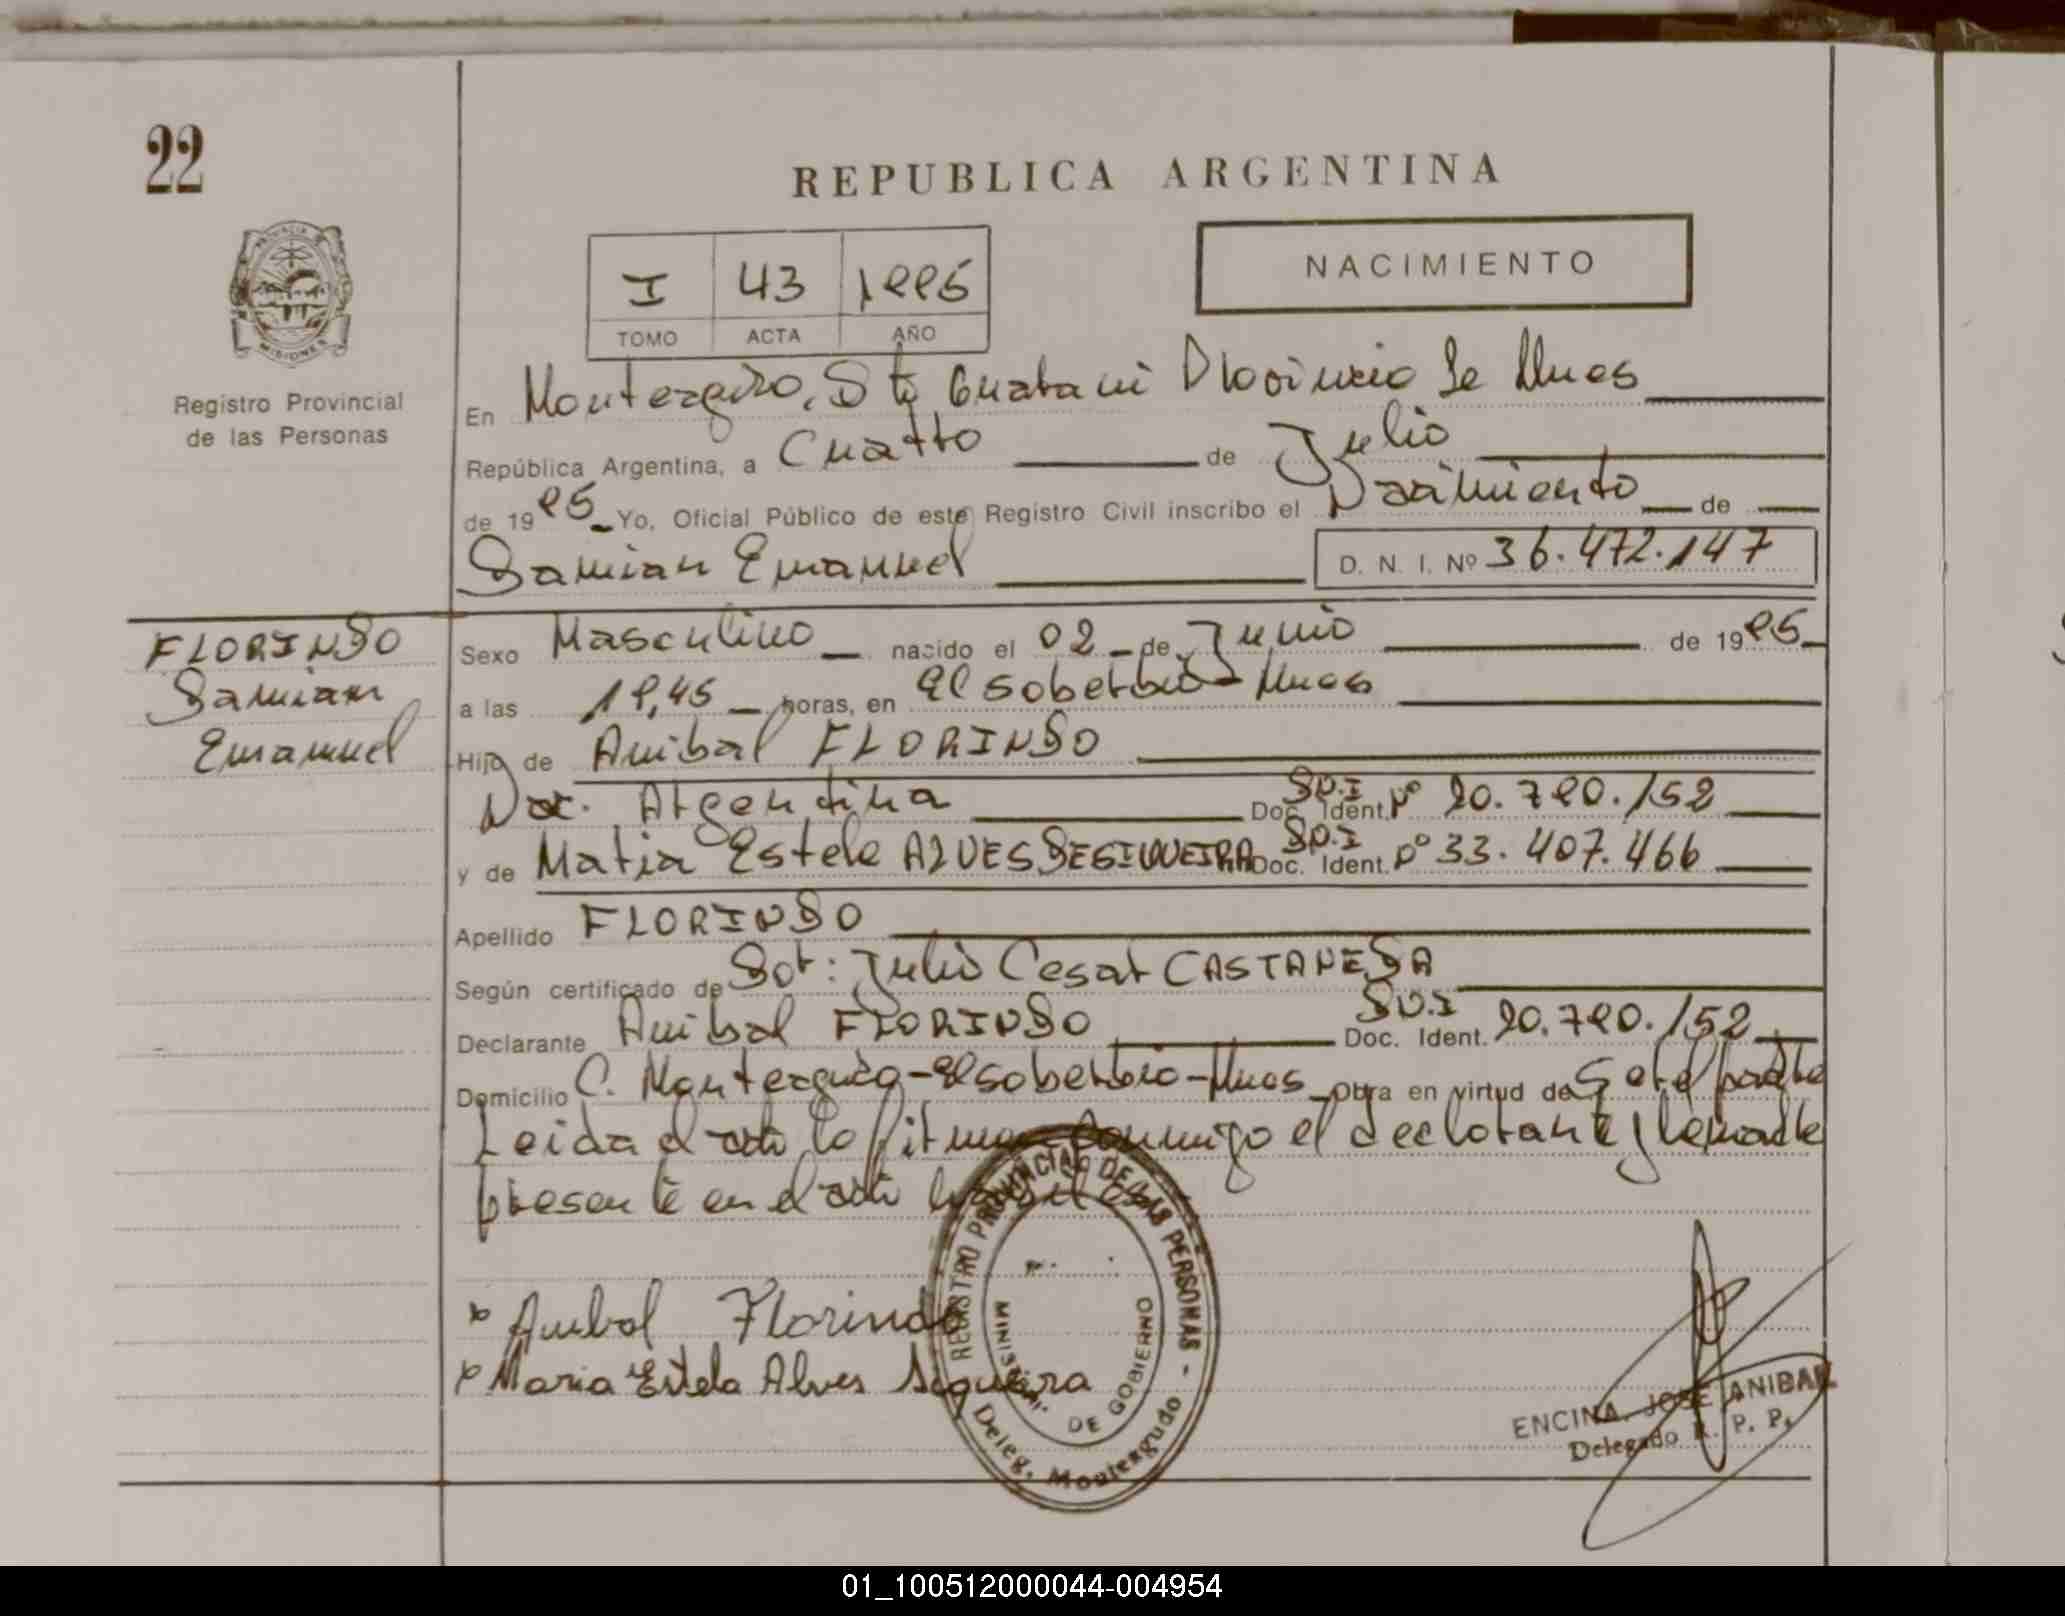 22
REPUBLICA ARGENTINA
PROVINCIA DE
MISIONES
I 43 1995
TOMO ACTA AÑO
NACIMIENTO
Registro Provincial
de las Personas
En Monteagudo, Dto Guarani Provincia de Mnes
República Argentina, a Cuatro de Julio
de 1995 Yo, Oficial Público de este Registro Civil inscribo el Nacimiento de
Damian Emanuel D. N. I. Nº 36.472.147
FLORINDO
Damian
Emanuel
Sexo Masculino nacido el 02 de Junio de 1995
a las 19,45 horas, en El Soberbio - Mnes
Hijo de Anibal FLORINDO
Nac. Argentina Doc. Ident. D.N.I Nº 20.790.152
y de Maria Estela ALVES DESIQUEIRA Doc. Ident. D.N.I Nº 33.407.466
Apellido FLORINDO
Según certificado de Dor: Julio Cesar CASTANEDA
Declarante Anibal FLORINDO Doc. Ident. D.N.I 20.790.152
Domicilio C. Monteagudo - El Soberbio - Mnes Obra en virtud de Ser el padre
Leida el acta la firman conmigo el declarante y la madre
presente en el acto
x Anibal Florindo
x Maria Estela Alves Siqueira
REGISTRO PROVINCIAL DE LAS PERSONAS -
MINISTERIO DE GOBIERNO
Deleg. Monteagudo
ENCINA, JOSE ANIBAL
Delegado R. P. P.
01_100512000044-004954